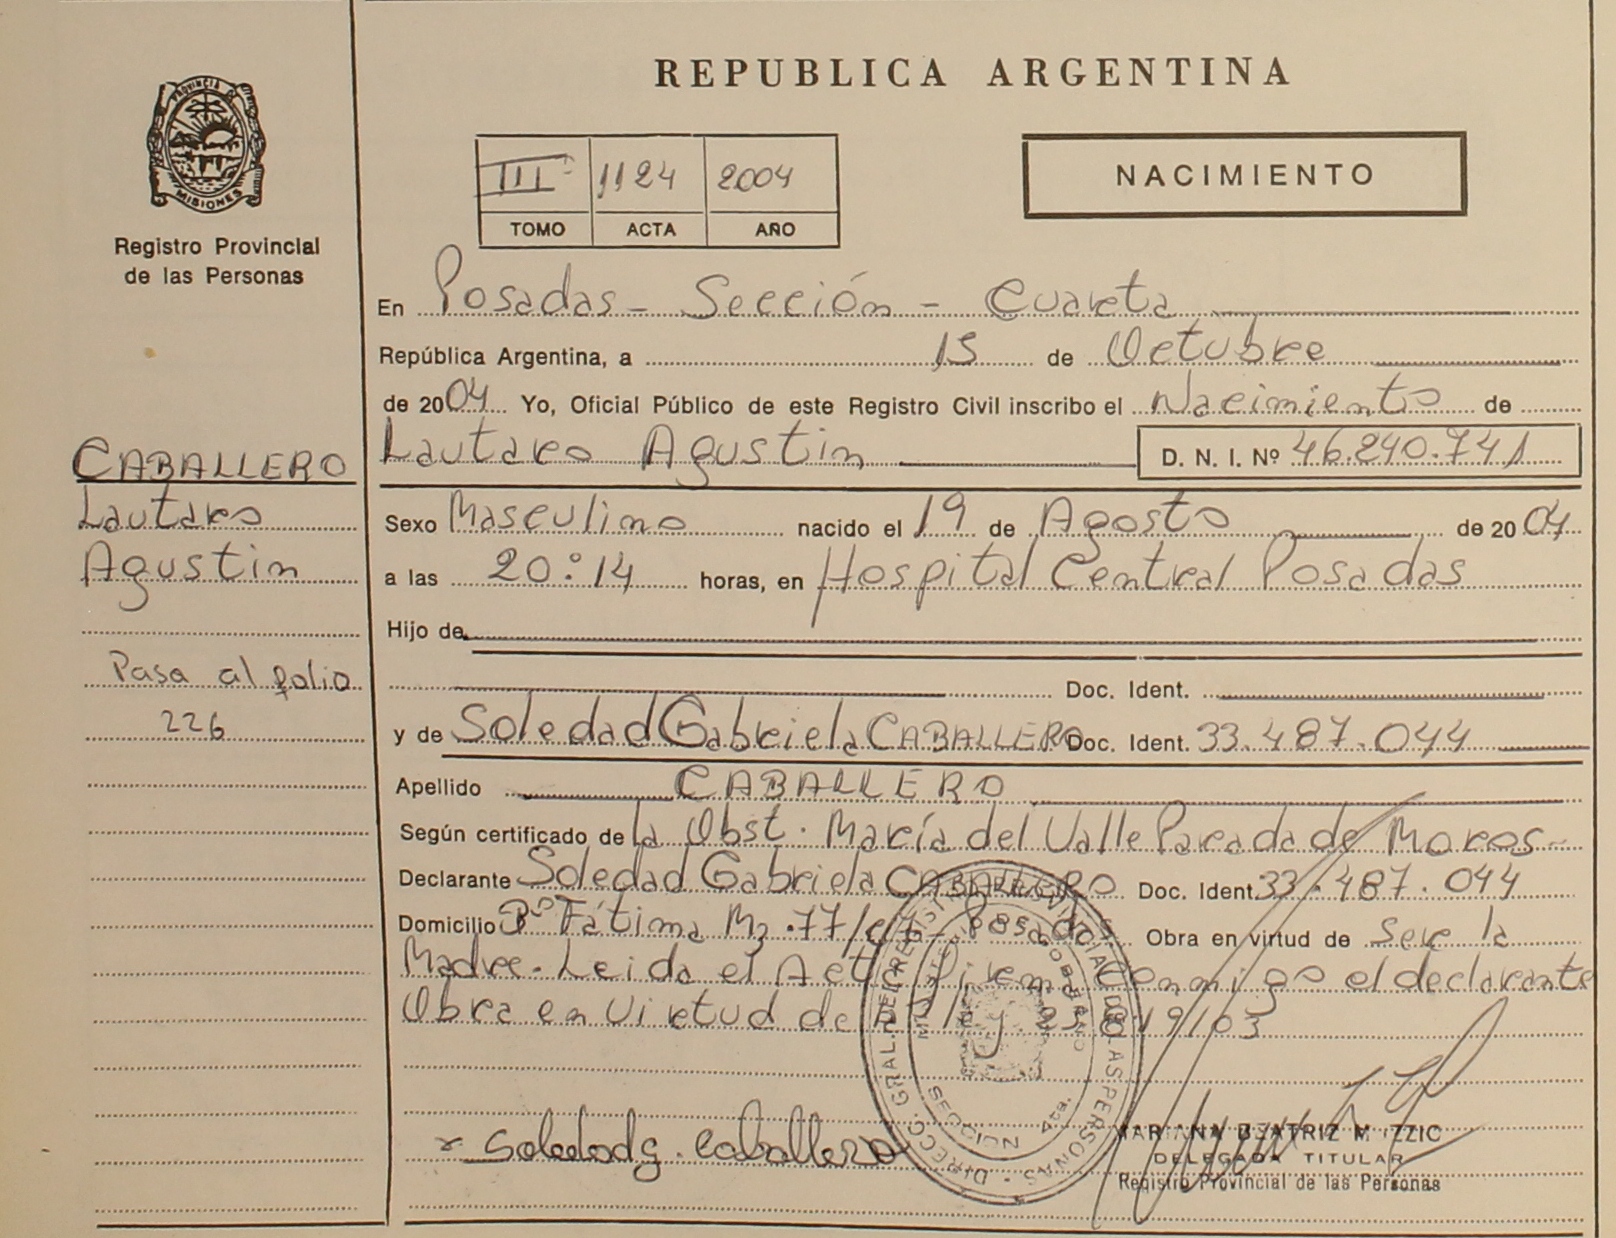 REPUBLICA ARGENTINA
PROVINCIA DE
MISIONES
Registro Provincial
de las Personas
III 1124 2004
TOMO ACTA AÑO
NACIMIENTO
En Posadas - Sección - Cuarta
República Argentina, a 15 de Octubre
de 2004 Yo, Oficial Público de este Registro Civil inscribo el Nacimiento de
Lautaro Agustin D. N. I. Nº 46.240.741
CABALLERO
Lautaro
Agustin
Sexo Masculino nacido el 19 de Agosto de 2004
a las 20:14 horas, en Hospital Central Posadas
Hijo de
Pasa al folio
226
Doc. Ident.
y de Soledad Gabriela CABALLERO Doc. Ident. 33.487.044
Apellido CABALLERO
Según certificado de la Obst. María del Valle Parada de Moros
Declarante Soledad Gabriela CABALLERO Doc. Ident. 33.487.044
Domicilio Bº Fátima Mz.77 Posadas Obra en virtud de Ser la
Madre. Leida el Acta Firma Conmigo el declarante
Obra en Virtud de
DIRECC. GRAL. DEL REGISTRO PROVINCIAL DE LAS PERSONAS
SECCION 4ta.
Soledad g. Caballero
MARIANA BEATRIZ
DELEGADA TITULAR
Registro Provincial de las Personas